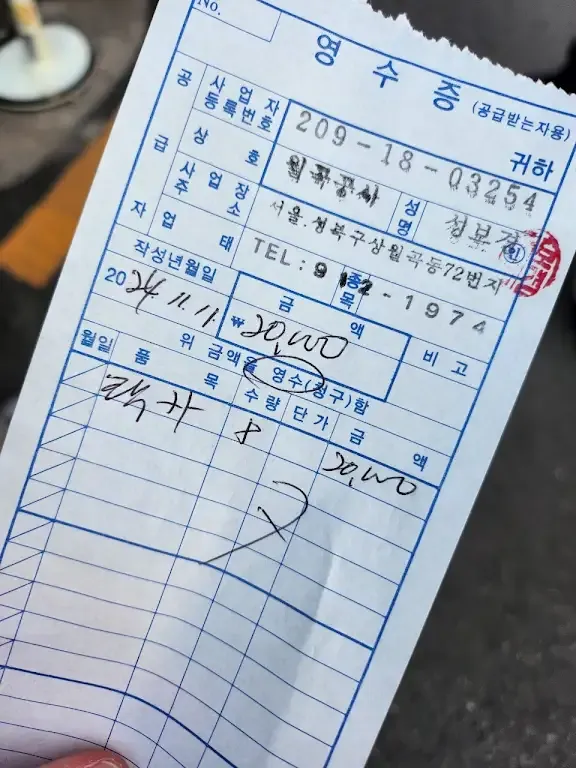 No.
영 수 증 (공급받는자용)
귀하
공 급 자
사업자 등록번호 209-18-03254
상 호 월곡공사 성명
사업장 주소 서울.성북구상월곡동72번지
업 태 TEL: 종목 -1974
작성년월일 금 액 비 고
2024.11.11. ₩ 20,000
위 금액을 영수(청구)함
월일 품 목 수량 단가 금 액
8 20,000